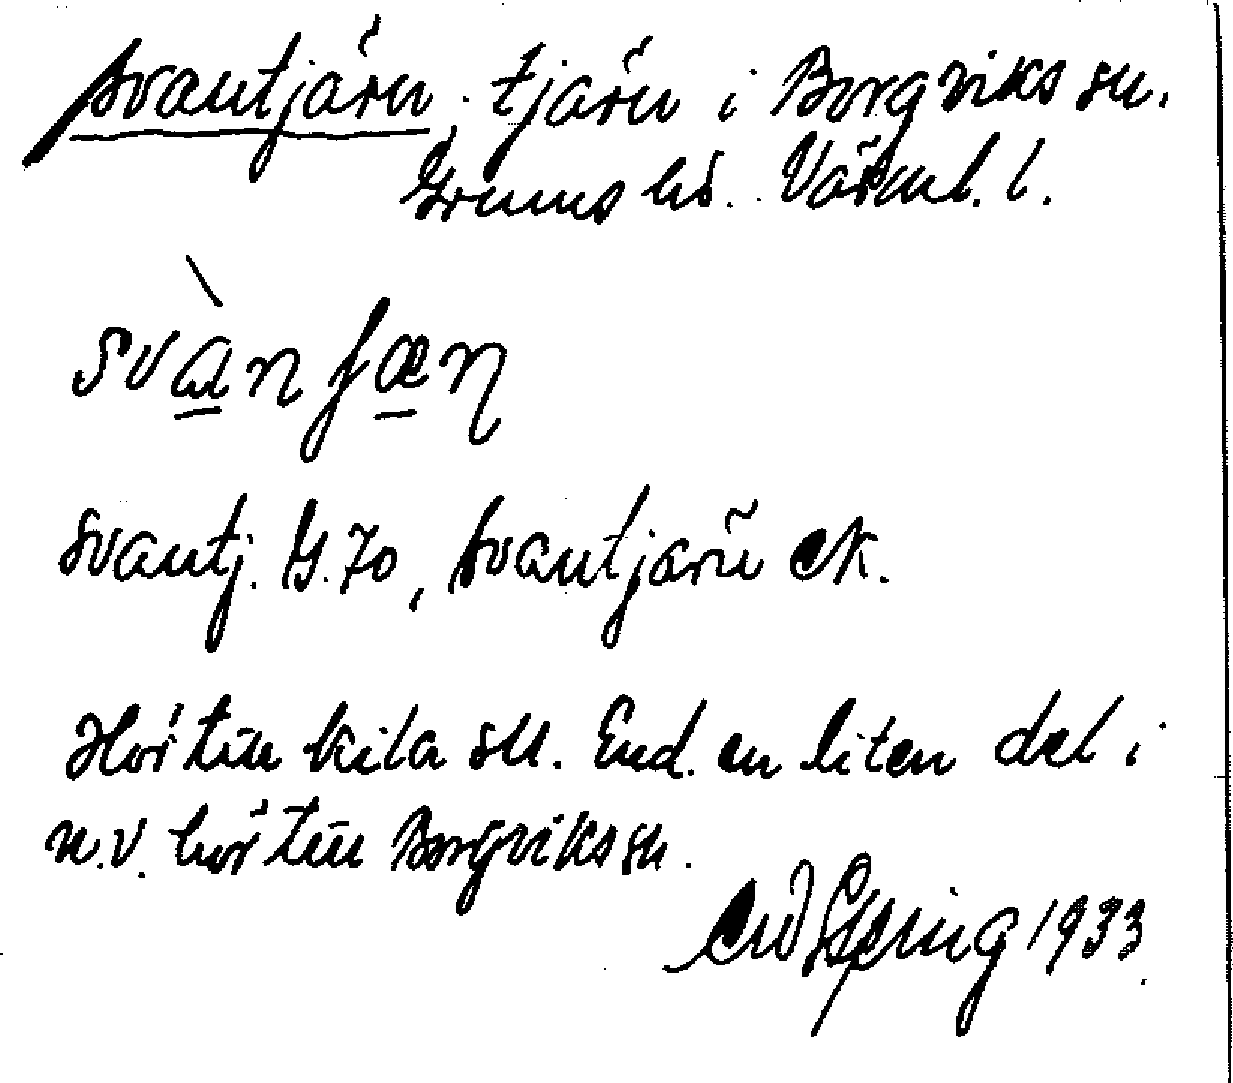 Svantjärn, tjärn i Borgviks sn.
Grums hd. Värml. l.
svànʃæn
Svantj. G. 70, Svantjärn ek.
Hör till Kila sn. End. en liten del i
n.v. hör till Borgviks sn.
1933